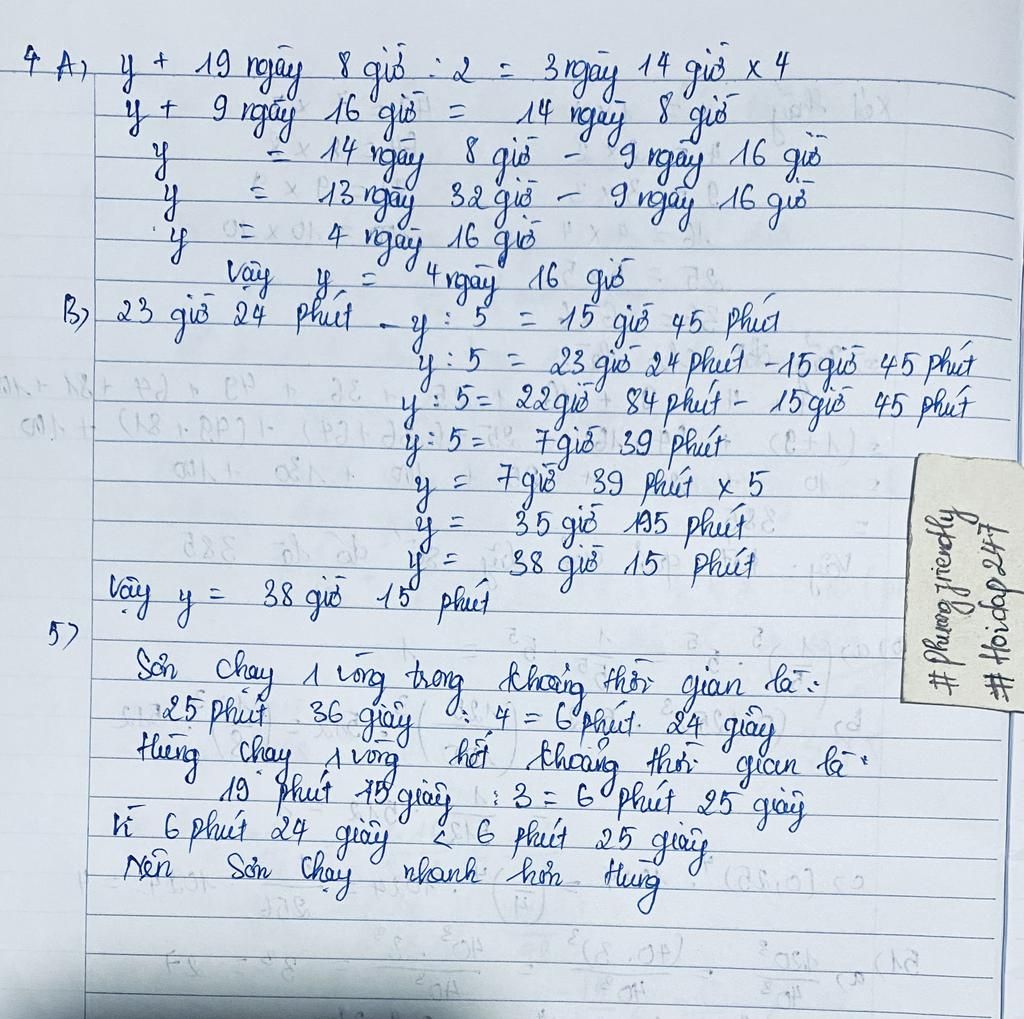 4 A) y + 19 ngày 8 giờ : 2 = 3 ngày 14 giờ x 4
y + 9 ngày 16 giờ = 14 ngày 8 giờ
y = 14 ngày 8 giờ - 9 ngày 16 giờ
y = 13 ngày 32 giờ - 9 ngày 16 giờ
y = 4 ngày 16 giờ
Vậy y = 4 ngày 16 giờ
B) 23 giờ 24 phút - y : 5 = 15 giờ 45 phút
y : 5 = 23 giờ 24 phút - 15 giờ 45 phút
y : 5 = 22 giờ 84 phút - 15 giờ 45 phút
y : 5 = 7 giờ 39 phút
y = 7 giờ 39 phút x 5
y = 35 giờ 195 phút
y = 38 giờ 15 phút
Vậy y = 38 giờ 15 phút
5)
Sơn chạy 1 vòng trong khoảng thời gian là:
25 phút 36 giây : 4 = 6 phút 24 giây
Hùng chạy 1 vòng hết khoảng thời gian là:
19 phút 15 giây : 3 = 6 phút 25 giây
Vì 6 phút 24 giây < 6 phút 25 giây
Nên Sơn chạy nhanh hơn Hùng
# Phuong friendly
# Hoidap 247